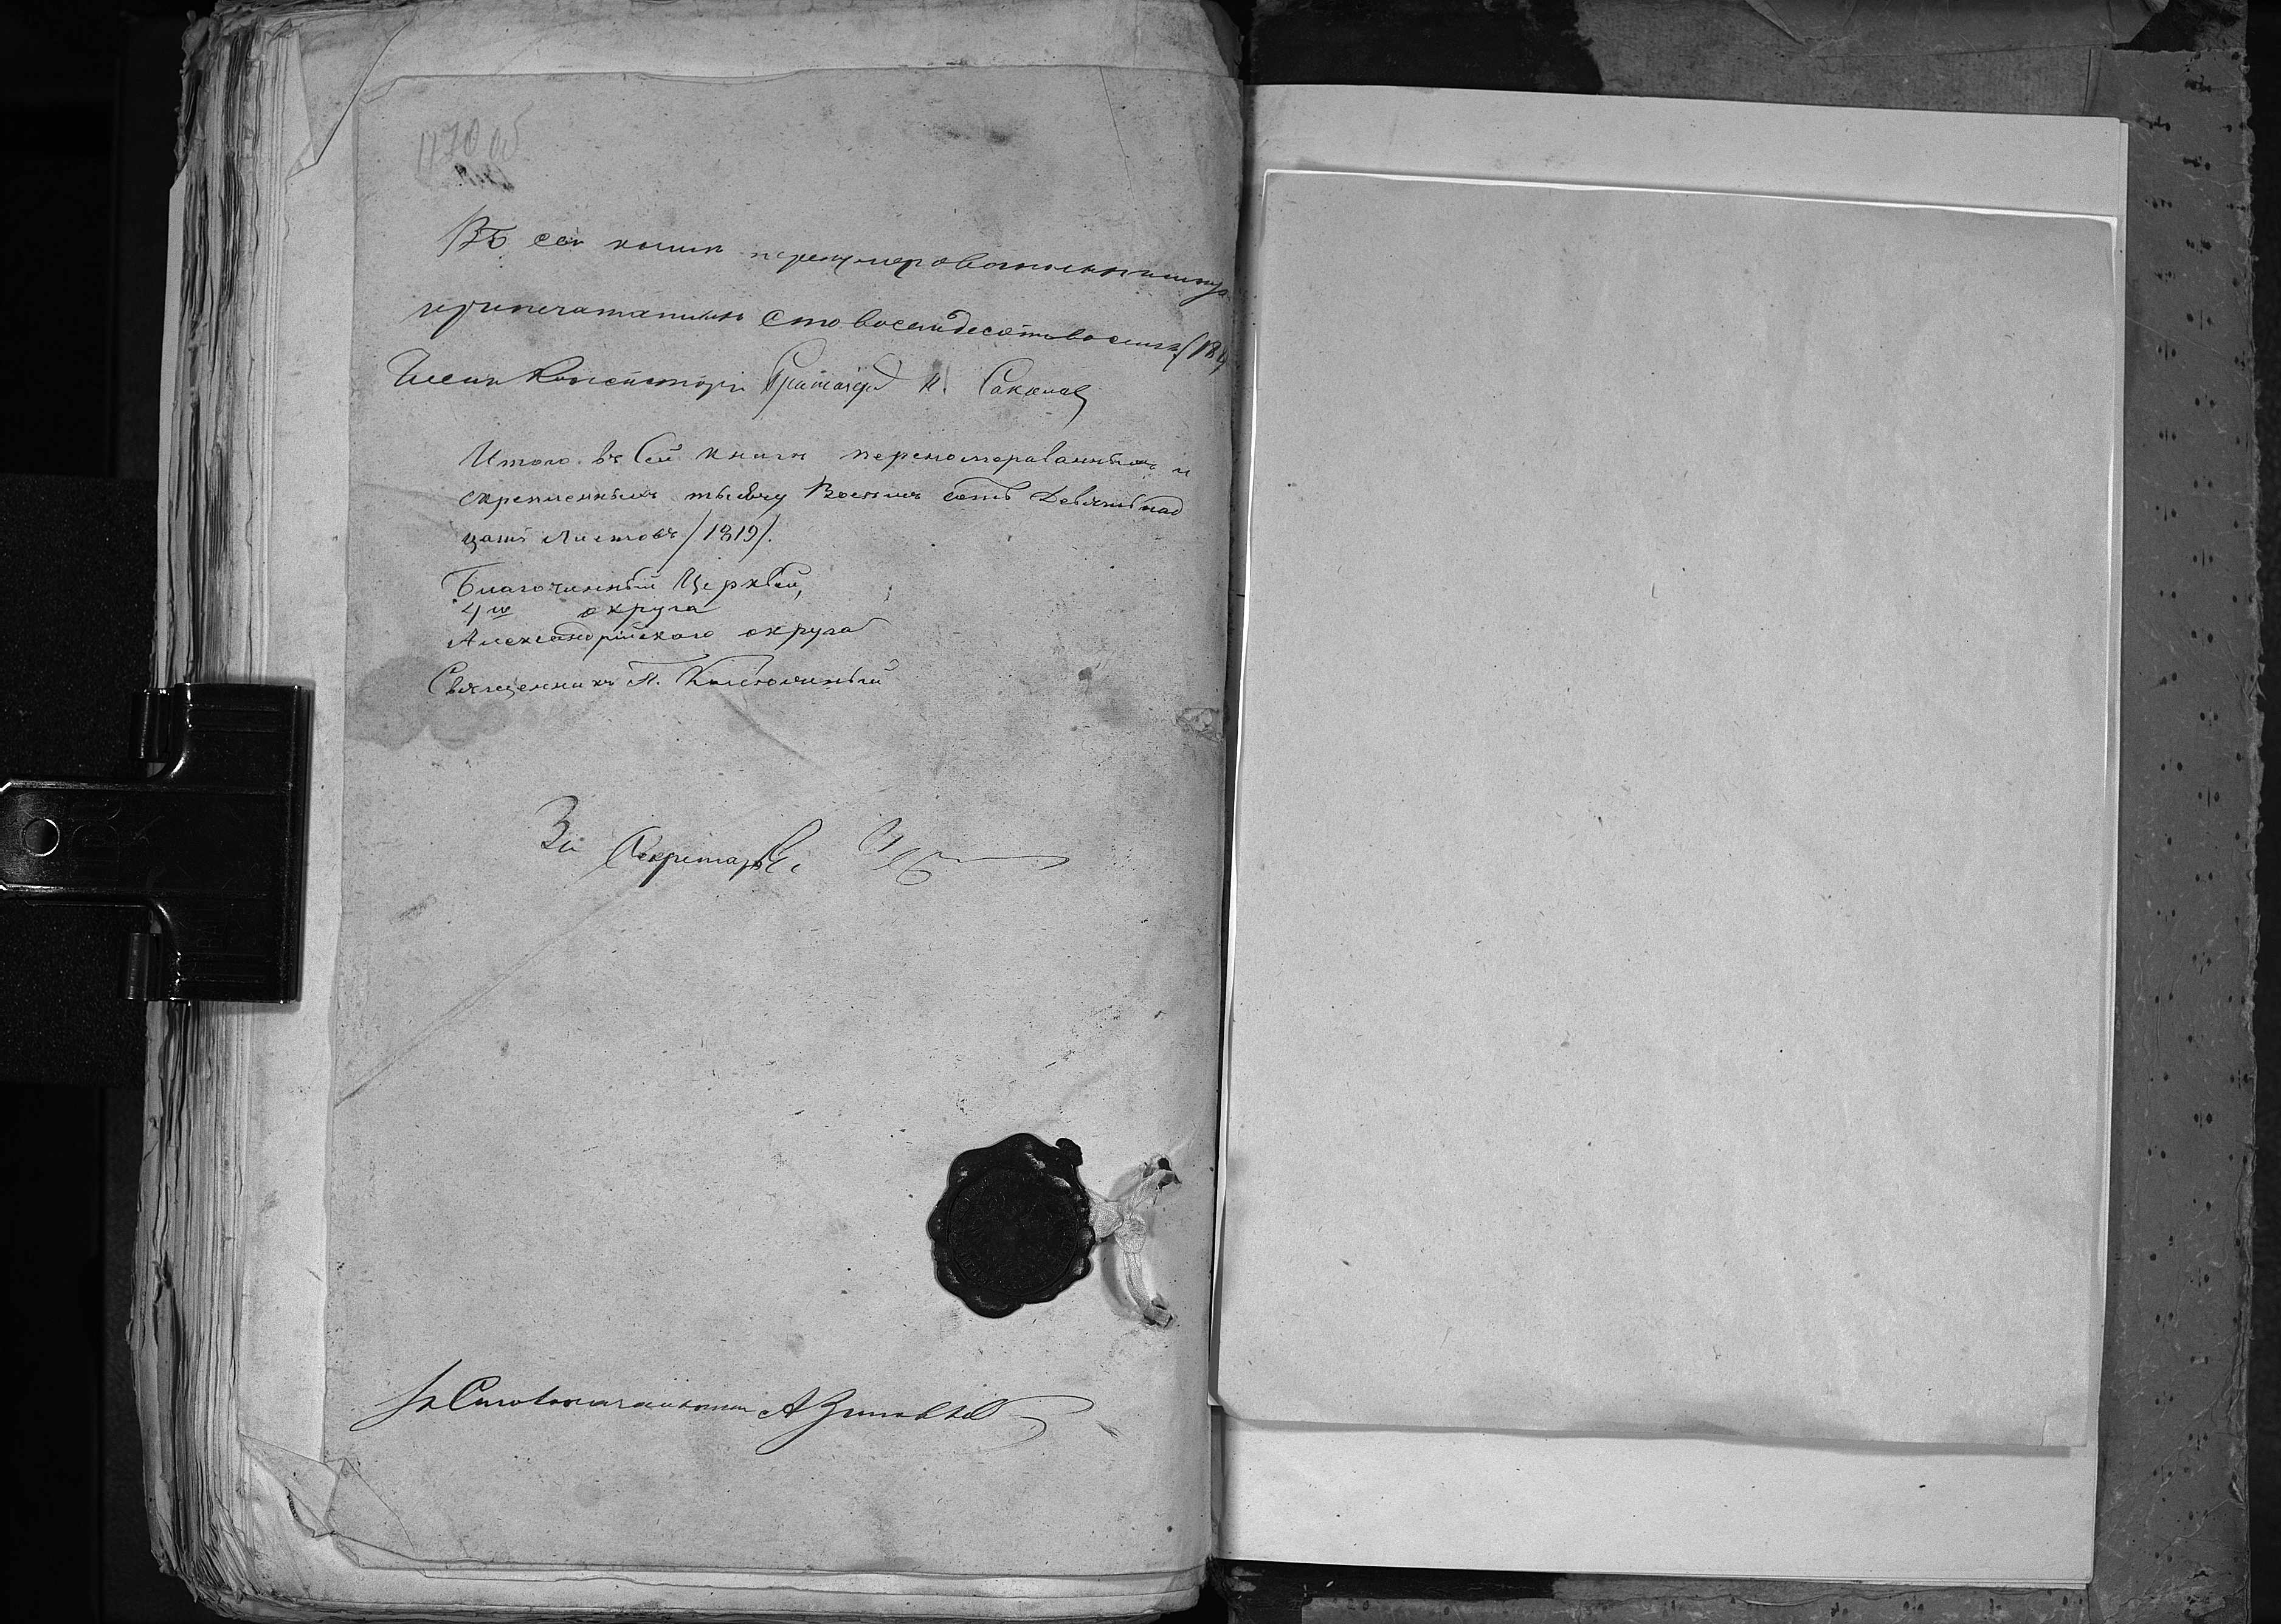 1170 об
Въ сей книгѣ перенумерованныхъ
припечатанныхъ Сто восемдесятъ восемь (188
Членъ Консисторіи Протоіерей Н. Соколов
Итого въ Сей книгѣ перенумераванныхъ и
скрепленныхъ тысячу Восемь сотъ Девятьнад
цать листовъ /1819/.
Благочинный Церквей,
4го округа
Александрійскаго округа
Священникъ П.
За Секретаря
За Столоначальника А Зиновьев